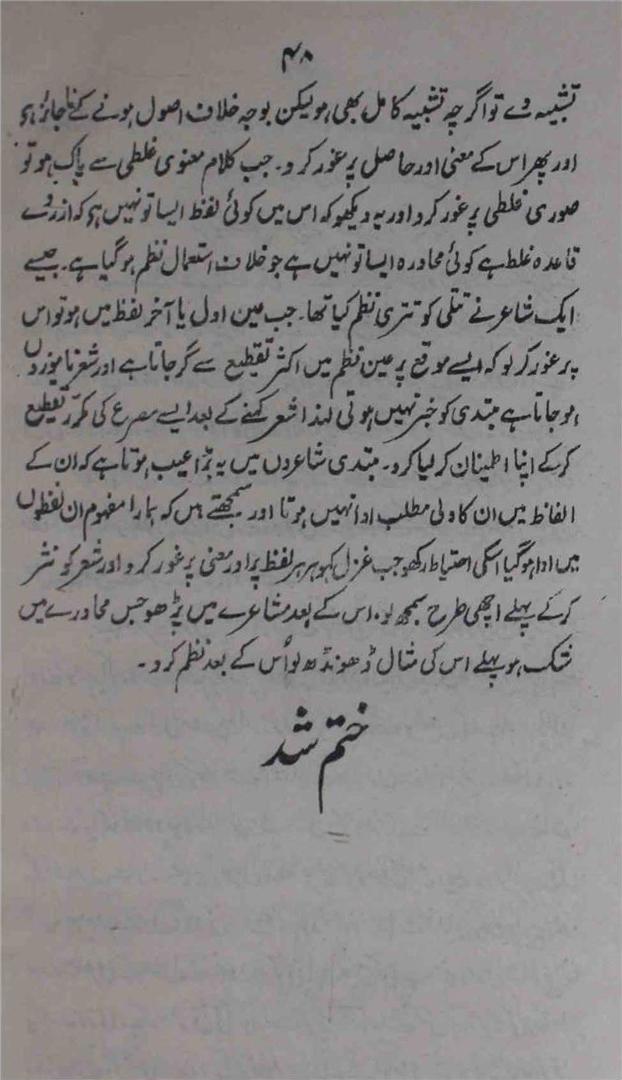 ۴۸
تشبیہ دے تو اگرچہ تشبیہ کامل بھی ہو لیکن بوجہ خلاف اصول ہونے کے ناجائز ہے
اور پھر اس کے معنی اور حاصل پر غور کرو۔ جب کلام معنوی غلطی سے پاک ہو تو
صوری غلطی پر غور کرو اور یہ دیکھو کہ اس میں کوئی لفظ ایسا تو نہیں ہے کہ ازروے
قاعدہ غلط ہے کوئی محاورہ ایسا تو نہیں ہے جو خلاف استعمال نظم ہو گیا ہے۔ جیسے
ایک شاعر نے تتلی کو تتری نظم کیا تھا۔ جب عین اول یا آخر لفظ میں ہو تو اس
پر غور کر لو کہ ایسے موقع پر عین نظم میں اکثر تقطیع سے گر جاتا ہے اور شعر ناموزوں
ہو جاتا ہے مبتدی کو خبر نہیں ہوتی لہذا شعر کہنے کے بعد ایسے مصرع کی مکرر تقطیع
کر کے اپنا اطینان کر لیا کرو۔ مبتدی شاعروں میں یہ بڑا عیب ہوتا ہے کہ ان کے
الفاظ میں ان کا دلی مطلب ادا نہیں ہوتا اور سمجھتے ہیں کہ ہمارا مفہوم ان لفظوں
میں ادا ہو گیا اسکی احتیاط رکھو جب غزل کہو ہر ہر لفظ پر اور معنی پر غور کرو اور شعر کو نثر
کر کے پہلے اچھی طرح سمجھ لو۔ اس کے بعد مشاعرے میں پڑھو جس محاورے میں
شک ہو پہلے اس کی مثال ڈھونڈھ لو اُس کے بعد نظم کرو۔
ختم شد